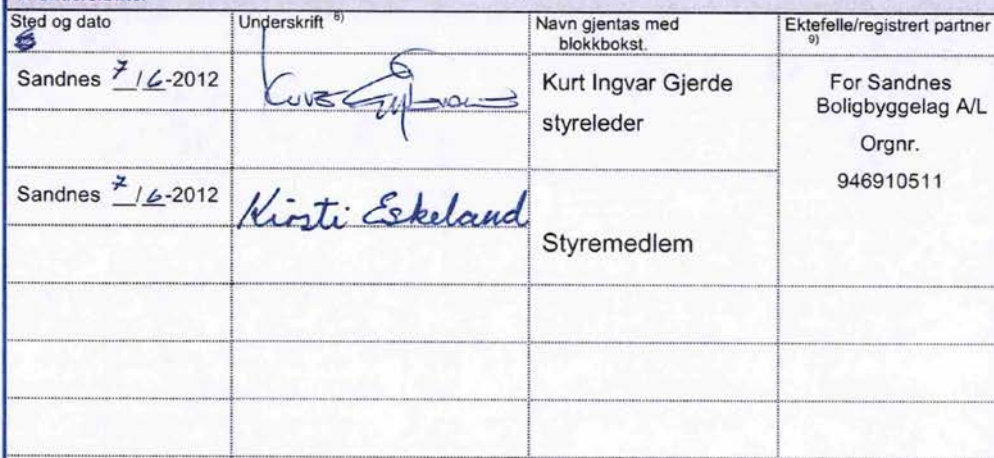 Sted og dato
Underskrift 8)
Navn gjentas med
blokkbokst.
Ektefelle/registrert partner
9)
Sandnes 7/6-2012
Kurt Ingvar Gjerde
styreleder
For Sandnes
Boligbyggelag A/L
Orgnr.
946910511
Sandnes 7/6-2012
Kirsti Eskeland
Styremedlem